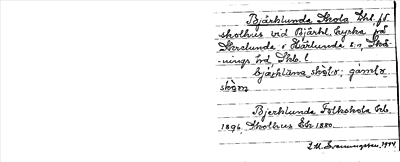 Bjärklunda Skola Lhl, f.d.
skolhus vid Bjärkl. kyrka på
Skarslunda i Härlunda sn, Skå-
nings hd, Skb. l.
bjärklana skòl·a; gàml·a
skòm
Bjerklunda Folkskola Ek.
1896. Skolhus Ek 1880.
1944